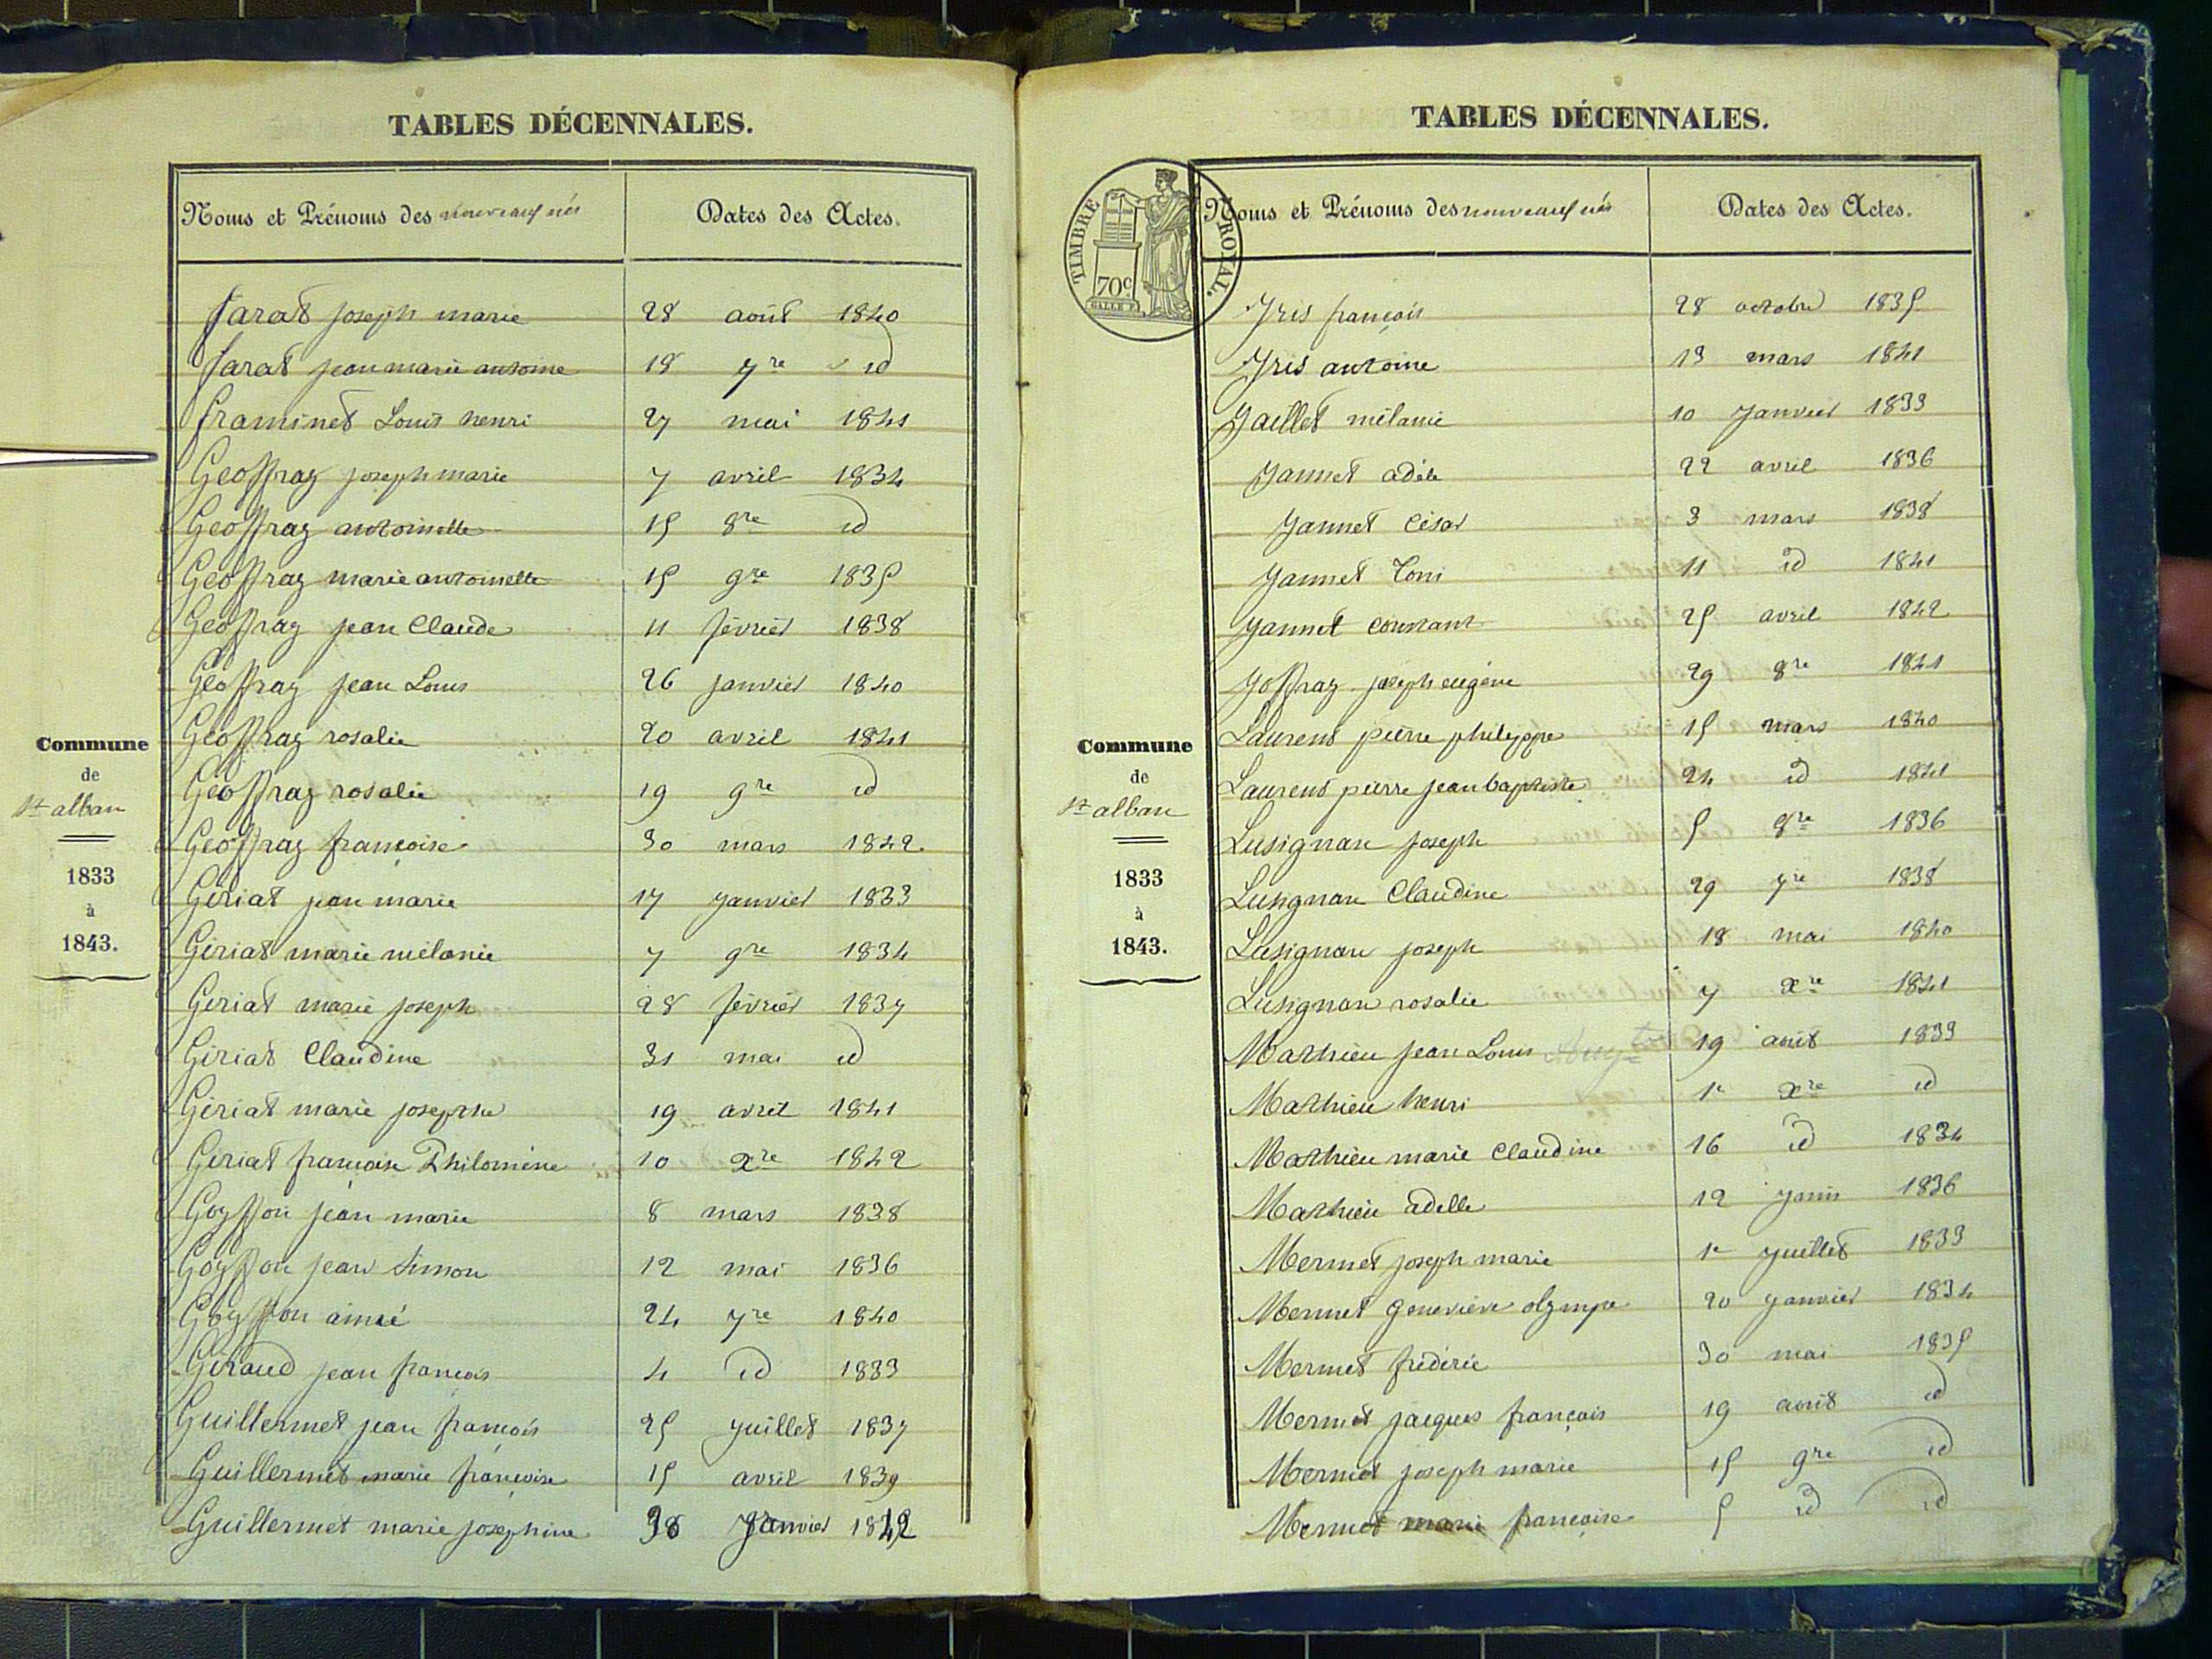 TABLES DÉCENNALES.
Noms et Prénoms des nouveaux nés Dates des Actes.
farat joseph marie 28 août 1840
farat jean marie antoine 18 7re id
framinet Louis henri 27 mai 1841
Geoffray joseph marie 7 avril 1834
Geoffray antoinette 15 8re id
Geoffray marie antoinette 15 9re 1835
Geoffray jean Claude 11 février 1838
Geoffray jean Louis 26 janvier 1840
Geoffray rosalie 20 avril 1841
Geoffray rosalie 19 9re id
Geoffray françoise 30 mars 1842.
Gériat jean marie 17 janvier 1833
Gériat marie mélanie 7 9re 1834
Gériat marie joseph 28 février 1837
Gériat Claudine 31 mai id
Gériat marie josephe 19 avril 1841
Gériat françoise Philomène 10 xre 1842
Goyffon jean marie 8 mars 1838
Goyffon jean Simon 12 mai 1836
Goyffon aimé 24 7re 1840
Giraud jean françois 4 id 1833
Guillermet jean françois 25 juillet 1837
Guillermet marie françoise 15 avril 1839
Guillermet marie josephine janvier 1842
Commune
de
St alban
1833
à
1843.
TABLES DÉCENNALES.
TIMBRE ROYAL.
70c
Noms et Prénoms des nouveaux nés Dates des Actes.
Iris françois 28 octobre 1835
Iris antoine 13 mars 1841
Jaillet mélanie 10 janvier 1833
Jannet adèle 22 avril 1836
Jannet César 3 mars 1838
Jannet Toni 11 id 1841
Jannet constant 25 avril 1842
Joffray joseph eugène 29 8re 1841
Laurent pierre philippe 15 mars 1840
Laurent pierre jean baptiste 24 id 1841
Lusignan joseph 5 8re 1836
Lusignan Claudine 29 7re 1838
Lusignan joseph 18 mai 1840
Lusignan rosalie 7 xre 1841
Mathieu jean Louis 19 août 1833
Mathieu henri 1er xre id
Mathieu marie Claudine 16 id 1834
Mathieu adelle 12 juin 1836
Mermet joseph marie 1er juillet 1833
Mermet geneviève olympe 20 janvier 1834
Mermet fréderic 30 mai 1835
Mermet jacques françois 19 août id
Mermet joseph marie 15 9re id
Mermet marie françoise 5 id id
Commune
de
St alban
1833
à
1843.